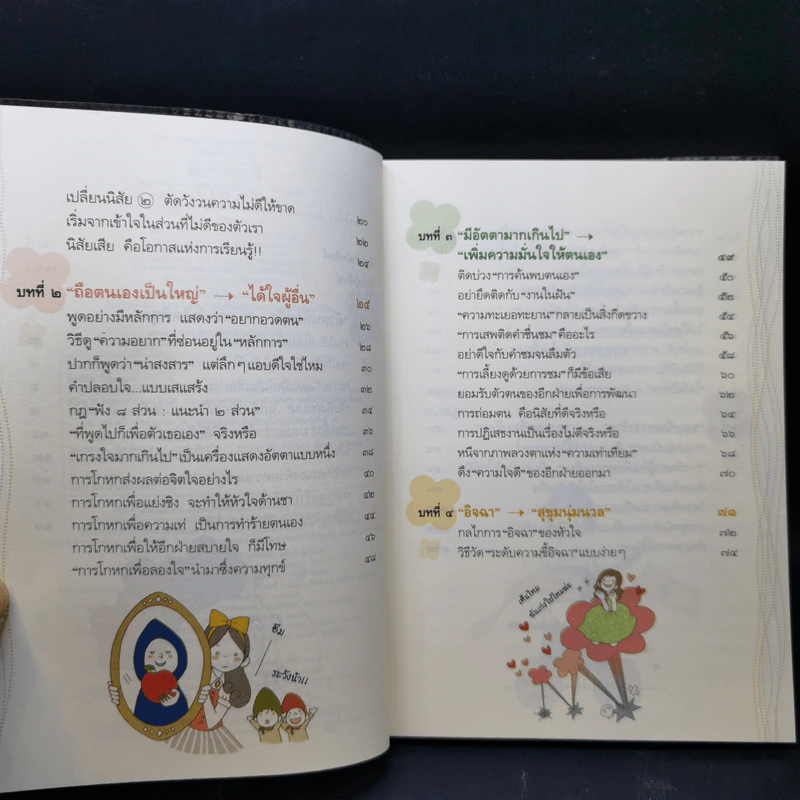 เปลี่ยนนิสัย ๒ ตัดวังวนความไม่ดีให้ขาด ๒๐
เริ่มจากเข้าใจในส่วนที่ไม่ดีของตัวเรา ๒๒
นิสัยเสีย คือโอกาสแห่งการเรียนรู้!! ๒๔
บทที่ ๒ "ถือตนเองเป็นใหญ่" → "ได้ใจผู้อื่น" ๒๕
พูดอย่างมีหลักการ แสดงว่า"อยากอวดตน" ๒๖
วิธีดู"ความอยาก"ที่ซ่อนอยู่ใน"หลักการ" ๒๘
ปากก็พูดว่า"น่าสงสาร" แต่ลึกๆแอบดีใจใช่ไหม ๓๐
คำปลอบใจ...แบบเสแสร้ง ๓๒
กฎ"ฟัง ๘ ส่วน : แนะนำ ๒ ส่วน" ๓๔
"ที่พูดไปก็เพื่อตัวเธอเอง" จริงหรือ ๓๖
"เกรงใจมากเกินไป"เป็นเครื่องแสดงอัตตาแบบหนึ่ง ๓๘
การโกหกส่งผลต่อจิตใจอย่างไร ๔๐
การโกหกเพื่อแย่งชิง จะทำให้หัวใจด้านชา ๔๒
การโกหกเพื่อความเท่ เป็นการทำร้ายตนเอง ๔๔
การโกหกเพื่อให้อีกฝ่ายสบายใจ ก็มีโทษ ๔๖
"การโกหกเพื่อลองใจ"นำมาซึ่งความทุกข์ ๔๘
อืม
ระวังน้า!!
บทที่ ๓ "มีอัตตามากเกินไป" →
"เพิ่มความมั่นใจให้ตนเอง" ๔๙
ติดบ่วง"การค้นพบตนเอง" ๕๐
อย่ายึดติดกับ"งานในฝัน" ๕๒
"ความทะเยอทะยาน"กลายเป็นสิ่งกีดขวาง ๕๔
"การเสพติดคำชื่นชม"คืออะไร ๕๖
อย่าดีใจกับคำชมจนลืมตัว ๕๘
"การเลี้ยงดูด้วยการชม"ก็มีข้อเสีย ๖๐
ยอมรับตัวตนของอีกฝ่ายเพื่อการพัฒนา ๖๒
การถ่อมตน คือนิสัยที่ดีจริงหรือ ๖๔
การปฏิเสธงานเป็นเรื่องไม่ดีจริงหรือ ๖๖
หนีจากภาพลวงตาแห่ง"ความเท่าเทียม" ๖๘
ดึง"ความใจดี"ของอีกฝ่ายออกมา ๗๐
บทที่ ๔ "อิจฉา" → "สุขุมนุ่มนวล" ๗๑
กลไกการ"อิจฉา"ของหัวใจ ๗๒
วิธีวัด"ระดับความขี้อิจฉา"แบบง่ายๆ ๗๔
เห็นไหม
ฉันเก่งใช่ไหมล่ะ